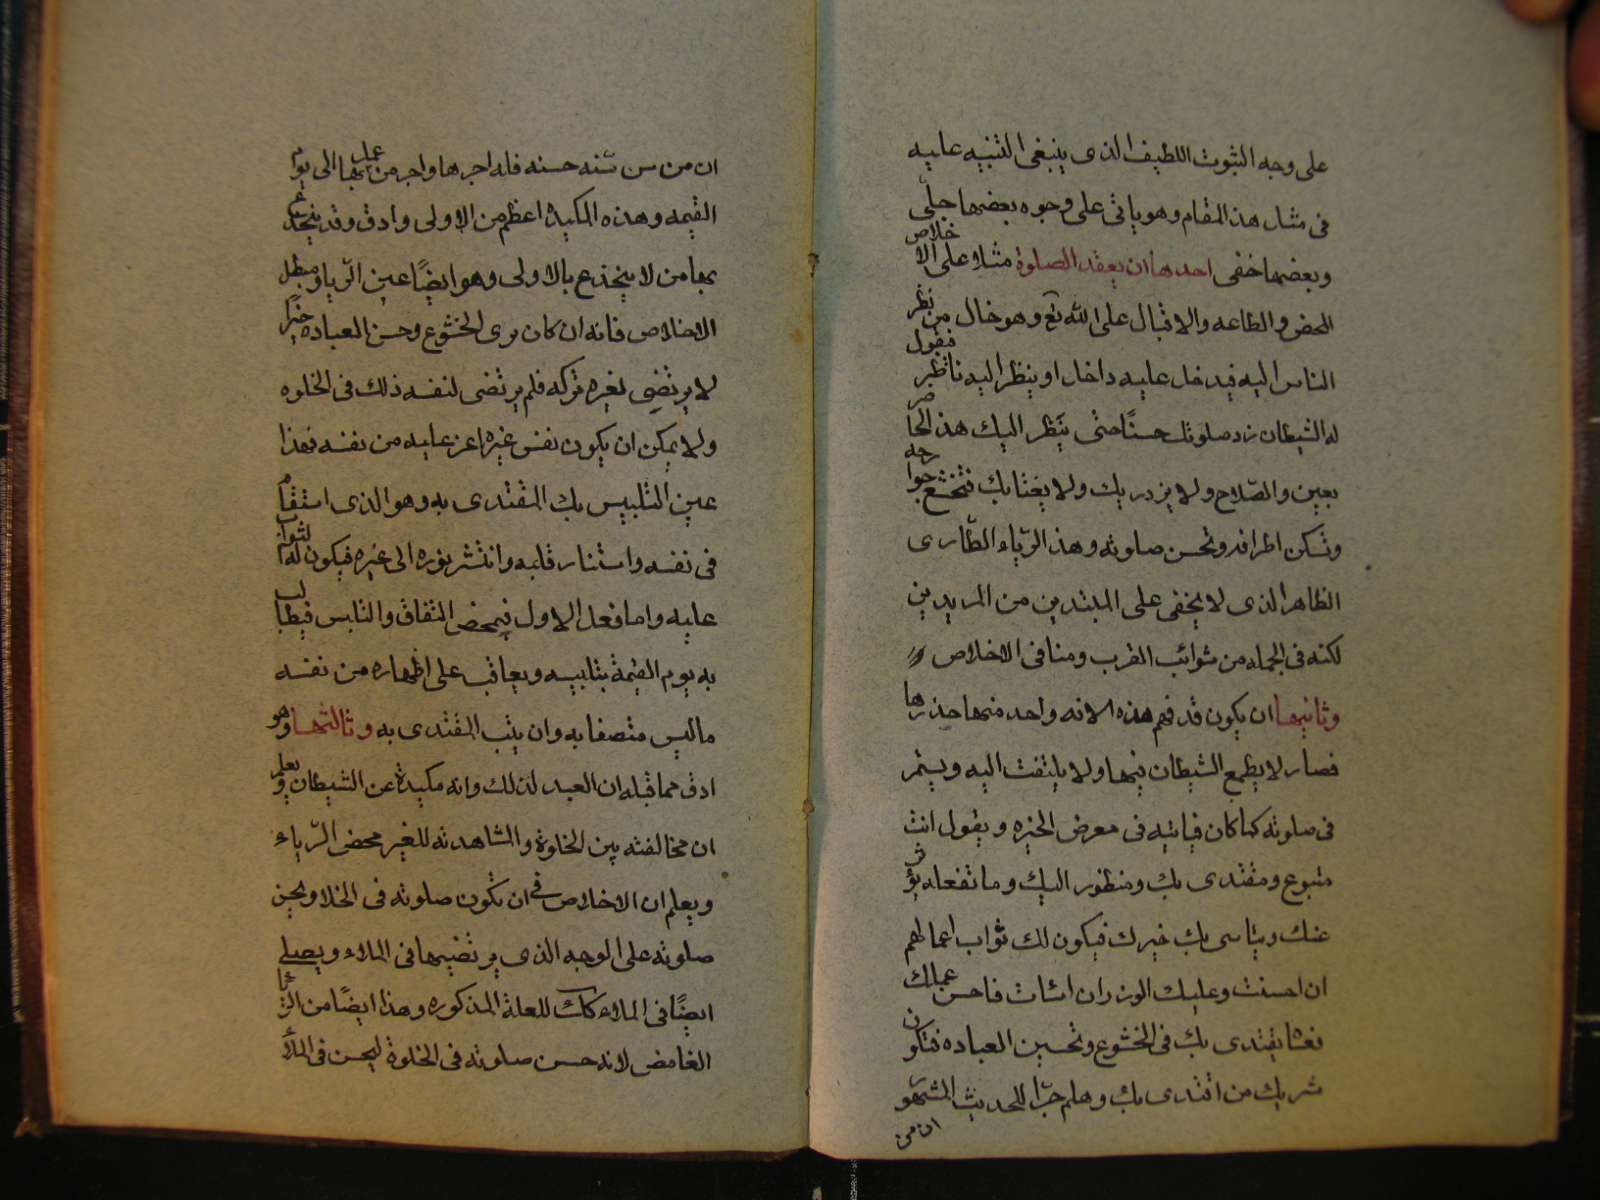 على وجه الثبوت اللطيف الذى ينبغى التنبيه عليه
فى مثل هذ المقام وهو ياتى على وجوه بعضها جلى
وبعضها خفى احدها ان يعقد الصلوة مثلا على الاخلاص
المحض والطاعه والاقبال على الله تع وهو خال من نظر
الناس اليه فيدخل عليه داخل او ينظر اليه ناظر فيقول
له الشيطان زد صلوتك حسنًا حتى ينظر اليك هذ الحاضر
بعين والصّلاح ولا يزدريك ولا يغتابك فتخشع جوارحه
وتسكن اطرافه وتحسن صلوته وهذ الرّياء الطّارى
الظاهر الذى لا يخفى على المبتدين من المريدين
لكنه فى الجمله من شوائب القرب ومنافى الاخلاص
وثانيها ان يكون قد فهم هذه الافه واحد منها حذرها
فصار لا يطمع الشيطان فيها ولا يلتفت اليه ويستمر
فى صلوته كما كان فياتيه فى معرض الخيره ويقول انت
متبوع ومقتدى بك ومنظور اليك وما تفعله يؤثر
عنك ويتاسى بك غيرك فيكون لك ثواب اعمالهم
ان احسنت وعليك الوزر ان اسات فاحسن عملك
فعسا يقتدى بك فى الخشوع وتحسين العباده فتكون
شريك من اقتدى بك وهلم جرّا للحديث المشهو
ان من
ان من سن سّنه حسنه فله اجرها واجر من عمل بها الى يوم
القيمه وهذه المكيدة اعظم من الاولى وادق وقد ينخدع
بها من لا ينخدع بالاولى وهو ايضًا عين الرّيا ومبطل
الاخلاص فانه ان كان يرى الخشوع وحسن العباده خيرًا
لا يرتضى لغيره تركه فلم يرتضى لنفسه ذلك فى الخلوه
ولا يمكن ان يكون نفس غيره اعز عليه من نفسه فهذا
عين التلبيس بك المقتدى به وهو الذى استقام
فى نفسه واستنار قلبه وانتشر نوره الى غيره فيكون له الثواب
عليه واما فعل الاول فمحض النفاق والتلبس فيطالب
به يوم القيمة بتلبيسه ويعاقب على اظهاره من نفسه
ماليس متصفا به وان يثب المقتدى به وثالثها وهو
ادق مما قبله ان العبد لذلك وانه مكيدة عن الشيطان ويعلم
ان مخالفته بين الخلوة والمشاهدته للغير محض الرّياء
ويعلم ان الاخلاص فى ان تكون صلوته فى الخلا ويحسن
صلوته على الوجه الذى يرتضيها فى الملاء ويصلى
ايضًا فى الملاء كك للعلة المذكوره وهذ ايضًا من الريا
الغامض لانه حسن صلوته فى الخلوة ليحسن فى الملأ